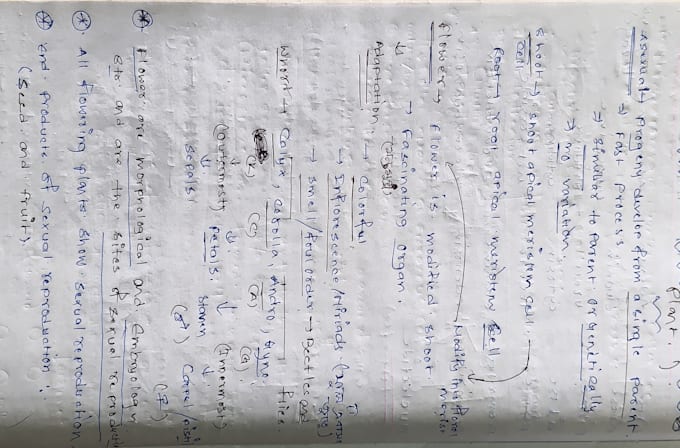 plant.
asexual → progeny develop from a single parent
→ Fast process.
→ similar to parent or genetically
→ no variation.
shoot → shoot apical meristem cell.
cell
Root → root apical meristem cell
Modify into floral
meristem
flower → flower is modified shoot
→ fascinating organ.
Adaptation → colorful
→ Inflorescence/
→ smell/foul odor → Beetles and
flies.
Whorl → Calyx, Corolla, Andro, Gyno.
(K) (C) (A) (G)
(Outermost) (Innermost)
sepals petals. stamen Carpel/pisti
(♂) (♀)
flower are morphological and Embryologica
and are the sites of sexual reproduction
All flowering plants show sexual reproduction
End products of sexual reproduction:
(seed and fruit)